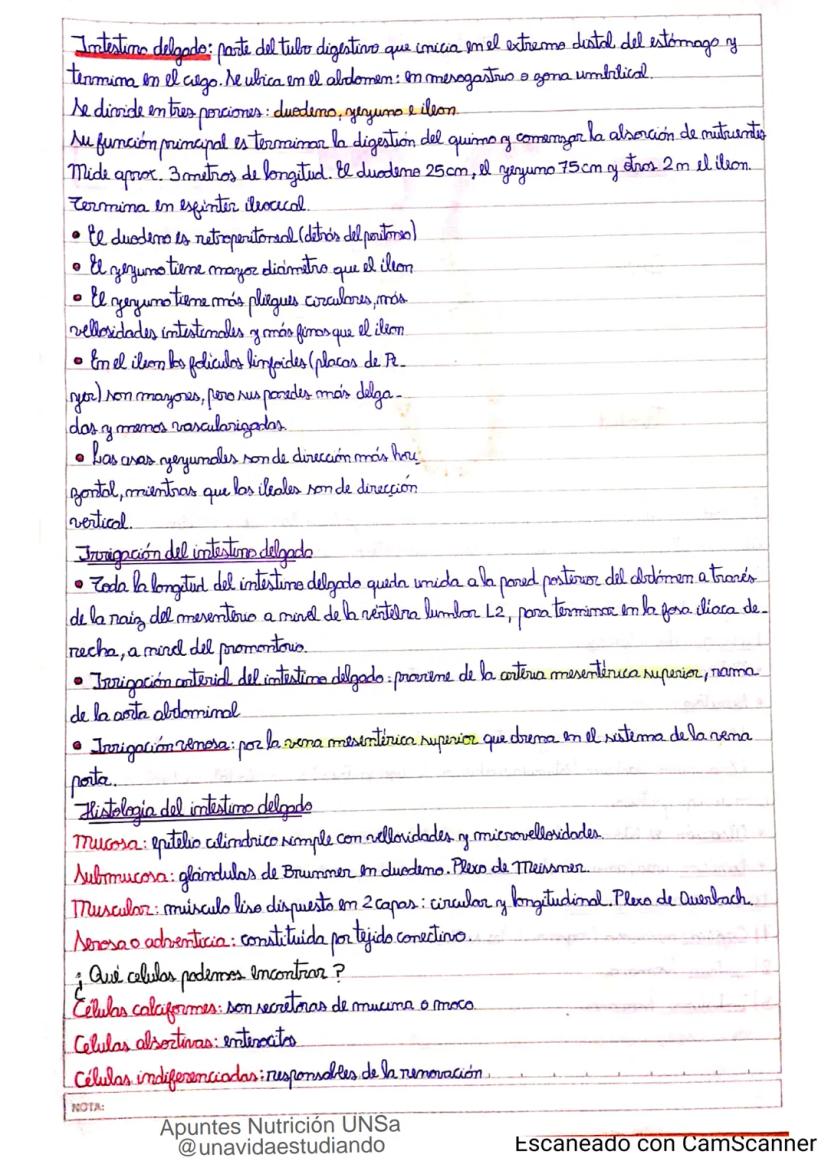 Intestino delgado: parte del tubo digestivo que inicia en el extremo distal del estómago y
termina en el ciego. Se ubica en el abdomen: en mesogastrio o zona umbilical.
Se divide en tres porciones: duodeno, yeyuno e íleon.
Su función principal es terminar la digestión del quimo y comenzar la absorción de nutrientes
Mide aprox. 3 metros de longitud. El duodeno 25cm, el yeyuno 75cm y otros 2m el íleon.
Termina en esfínter ileocecal.
• El duodeno es retroperitoneal (detrás del peritoneo)
• El yeyuno tiene mayor diámetro que el íleon
• El yeyuno tiene más pliegues circulares, más
vellosidades intestinales y más finos que el íleon
• En el íleon los folículos linfoides (placas de Pe-
yer) son mayores, pero sus paredes más delga-
das y menos vascularizadas.
• Las asas yeyunales son de dirección más hori-
zontal, mientras que las ileales son de dirección
vertical.
Irrigación del intestino delgado
• Toda la longitud del intestino delgado queda unida a la pared posterior del abdómen a través
de la raíz del mesenterio a nivel de la vértebra lumbar L2, para terminar en la fosa ilíaca de-
recha, a nivel del promontorio.
• Irrigación arterial del intestino delgado: proviene de la arteria mesentérica superior, rama
de la aorta abdominal
• Irrigación venosa: por la vena mesentérica superior que drena en el sistema de la vena
porta.
Histología del intestino delgado
Mucosa: epitelio cilíndrico simple con vellosidades y microvellosidades.
Submucosa: glándulas de Brunner en duodeno. Plexo de Meissner.
Muscular: músculo liso dispuesto en 2 capas: circular y longitudinal. Plexo de Auerbach.
Serosa o adventicia: constituida por tejido conectivo.
¿Qué celulas podemos encontrar?
Células caliciformes: son secretoras de mucina o moco
Celulas absortivas: enterocitos
Células indiferenciadas: responsables de la renovación
NOTA:
Apuntes Nutrición UNSa
@unavidaestudiando
Escaneado con CamScanner